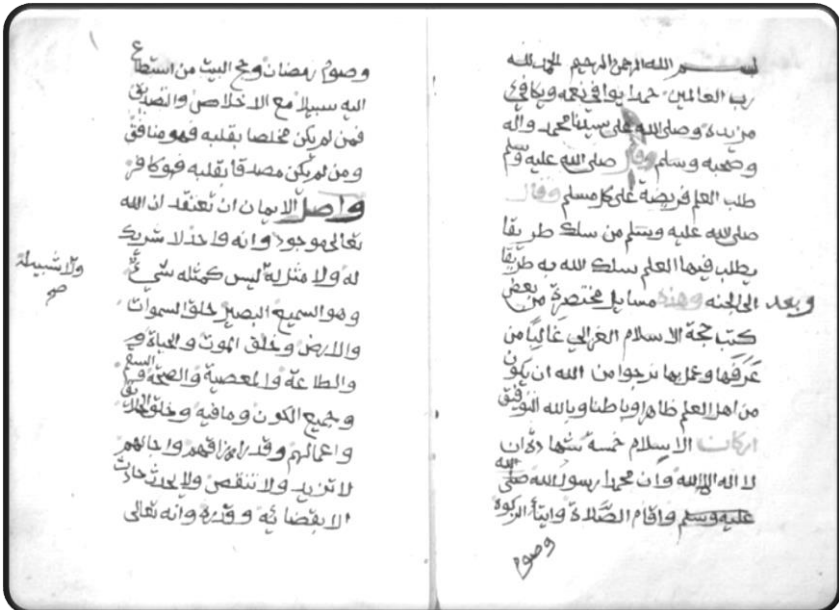 بسم الله الرحمن الرحيم الحمد لله
رب العالمين حمدا يوافي نعمه ويكافئ
مزيده وصلى الله على سيدنا محمد واله
وصحبه وسلم وقال صلى الله عليه وسلم
طلب العلم فريضة على كل مسلم وقال
صلى الله عليه وسلم من سلك طريقا
يطلب فيها العلم سلك الله به طريقا
وبعد الى الجنه وهذه مسايل مختصرة من بعض
كتب حجة الاسلام الغزالي غالبا من
عرفها وعمل بها نرجوا من الله ان يكون
من اهل العلم ظاهرا وباطنا وبالله التوفيق
اركان الاسلام خمسة شهادة ان
لا اله الا الله وان محمدا رسول الله صلى الله
عليه وسلم واقام الصلاة وايتاء الزكوة
وصوم
وصوم رمضان وحج البيت من استطاع
اليه سبيلا مع الاخلاص والتصديق
فمن لم يكن مخلصا بقلبه فهو منافق
ومن لم يكن مصدقا بقلبه فهو كافر
واصل الايمان ان تعتقد ان الله
تعالى موجود وانه واحد لا شريك
له ولا مثل له ليس كمثله شيء
ولا شبيه له
صح
وهو السميع البصير خلق السموات
والارض وخلق الموت والحياة و
والطاعة والمعصية والصحة والسقم
وجميع الكون وما فيه وخلق الخلايق
واعمالهم وقدر ارزاقهم واجالهم
لا تزيد ولا تنقص ولا يحدث حادث
الا بقضايه وقدره وانه تعالى